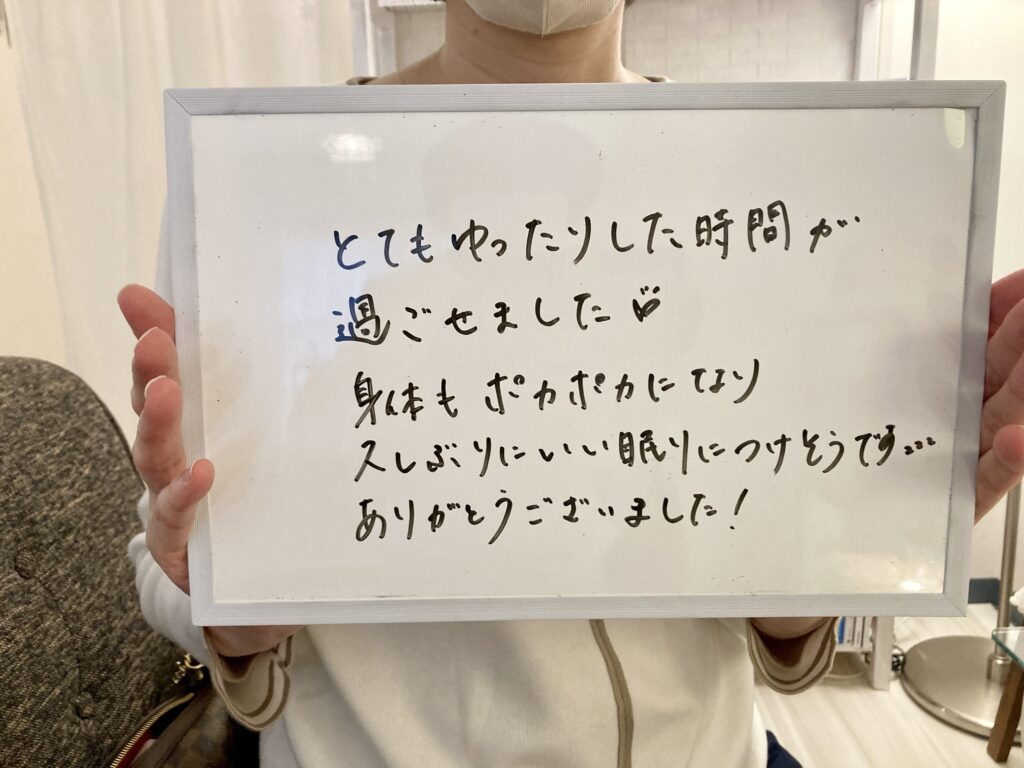 とてもゆったりした時間が
過ごせました♡
身体もポカポカになり
久しぶりにいい眠りにつけそうです。。。
ありがとうございました！